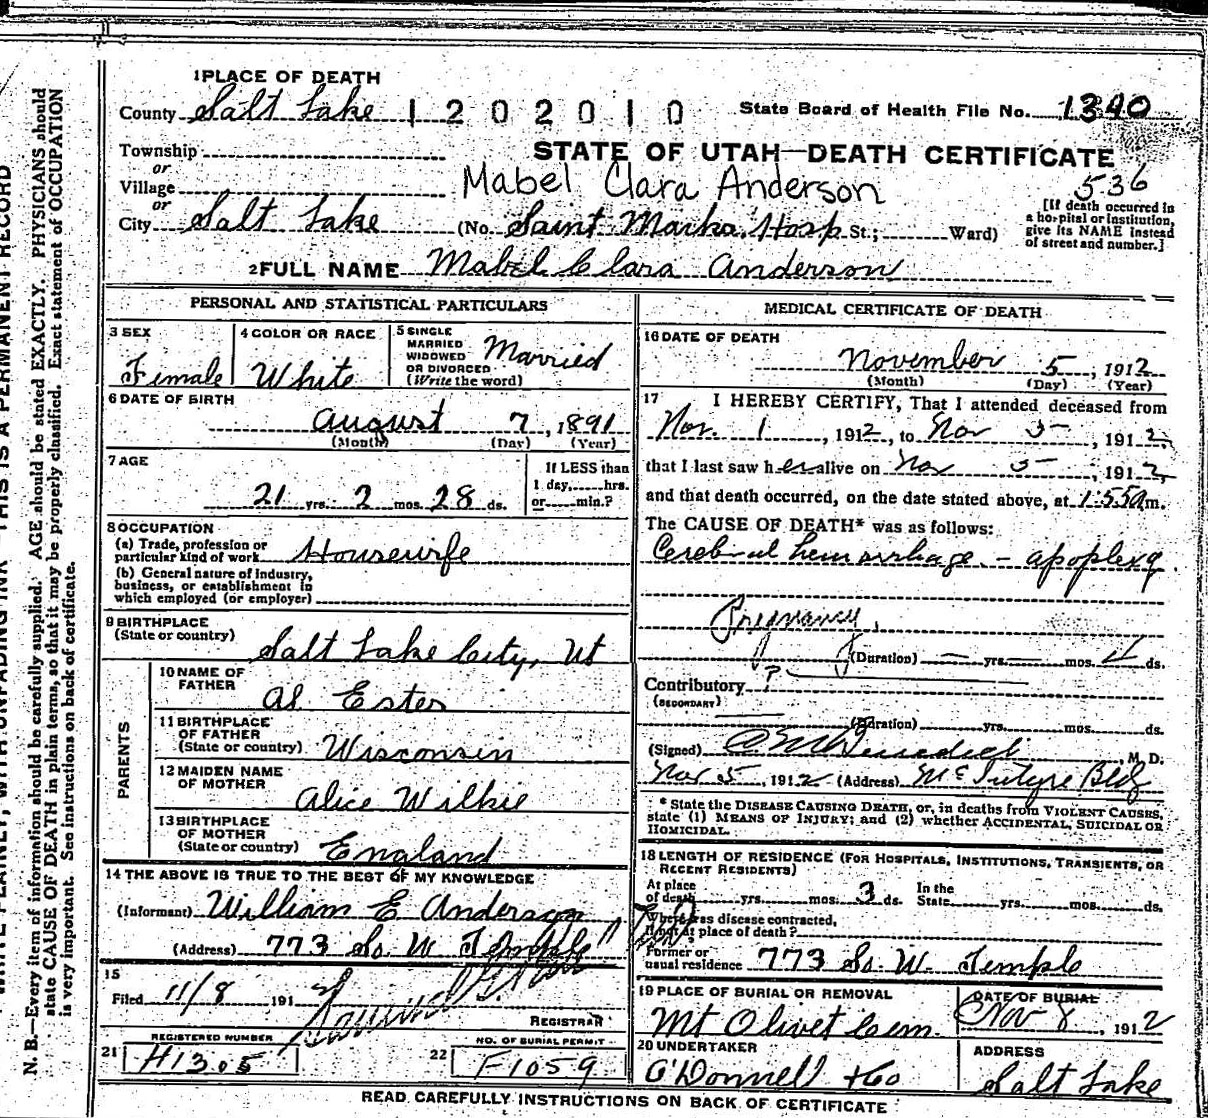 1 PLACE OF DEATH
County Salt Lake 1 2 0 2 0 1 0 State Board of Health File No. 1340
Township
or
STATE OF UTAH—DEATH CERTIFICATE
Village Mabel Clara Anderson 536
or
City Salt Lake (No. Saint Marks Hosp St.; Ward)
[If death occurred in
a hospital or institution,
give its NAME instead
of street and number.]
2 FULL NAME Mabel Clara Anderson
PERSONAL AND STATISTICAL PARTICULARS
3 SEX
Female
4 COLOR OR RACE
White
5 SINGLE
MARRIED
WIDOWED
OR DIVORCED
(Write the word)
Married
6 DATE OF BIRTH
August 7, 1891
(Month) (Day) (Year)
7 AGE
21 yrs. 2 mos. 28 ds.
If LESS than
1 day, hrs.
or min.?
8 OCCUPATION
(a) Trade, profession or
particular kind of work Housewife
(b) General nature of industry,
business, or establishment in
which employed (or employer)
9 BIRTHPLACE
(State or country)
Salt Lake City, Ut
PARENTS
10 NAME OF
FATHER
Al. Ester
11 BIRTHPLACE
OF FATHER
(State or country) Wisconsin
12 MAIDEN NAME
OF MOTHER
Alice Wilkie
13 BIRTHPLACE
OF MOTHER
(State or country) England
14 THE ABOVE IS TRUE TO THE BEST OF MY KNOWLEDGE
(Informant) William E Anderson
(Address) 773 So. W Temple
15
Filed 11/8 191
REGISTRAR
REGISTERED NUMBER
21 H1305
NO. OF BURIAL PERMIT
22 F1059
MEDICAL CERTIFICATE OF DEATH
16 DATE OF DEATH
November 5, 1912
(Month) (Day) (Year)
17 I HEREBY CERTIFY, That I attended deceased from
Nov. 1, 1912, to Nov 5, 1912,
that I last saw her alive on Nov 5, 1912,
and that death occurred, on the date stated above, at 1:55 a m.
The CAUSE OF DEATH* was as follows:
Cerebral hemorrhage - apoplexy.
Pregnancy.
(Duration) — yrs. mos. 4 ds.
Contributory ?
(SECONDARY)
(Duration) yrs. mos. ds.
(Signed) Benedict M. D.
Nov 5, 1912 (Address) McIntyre Bldg
* State the DISEASE CAUSING DEATH, or, in deaths from VIOLENT CAUSES,
state (1) MEANS OF INJURY; and (2) whether ACCIDENTAL, SUICIDAL OR
HOMICIDAL.
18 LENGTH OF RESIDENCE (FOR HOSPITALS, INSTITUTIONS, TRANSIENTS, OR
RECENT RESIDENTS)
At place
of death yrs. mos. 3 ds.
In the
State yrs. mos. ds.
Where was disease contracted,
if not at place of death?
Former or
usual residence 773 So. W. Temple
19 PLACE OF BURIAL OR REMOVAL
Mt Olivet Cem.
DATE OF BURIAL
Nov 8, 1912
20 UNDERTAKER
O'Donnell & Co
ADDRESS
Salt Lake
READ CAREFULLY INSTRUCTIONS ON BACK OF CERTIFICATE
THIS IS A PERMANENT RECORD
N. B.—Every item of information should be carefully supplied. AGE should be stated EXACTLY. PHYSICIANS should
state CAUSE OF DEATH in plain terms, so that it may be properly classified. Exact statement of OCCUPATION
is very important. See instructions on back of certificate.